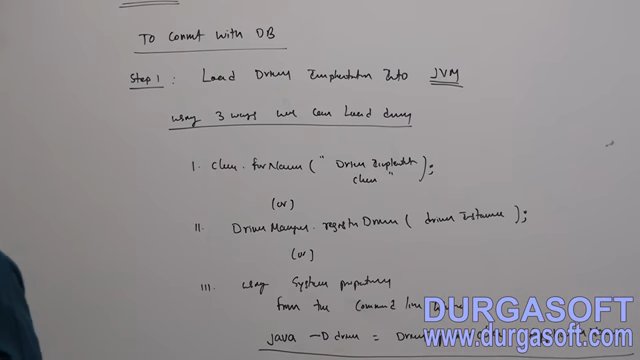 To Connect with DB
Step 1 : Load Driver Implementation Into JVM
using 3 ways we can Load driver
I. Class.forName( " Driver Implementation
class " );
(or)
II. DriverManager.registerDriver( driver Instance );
(or)
III. using System property
from the Command line
DURGASOFT
java -D driver = Driver
www.durgasoft.com